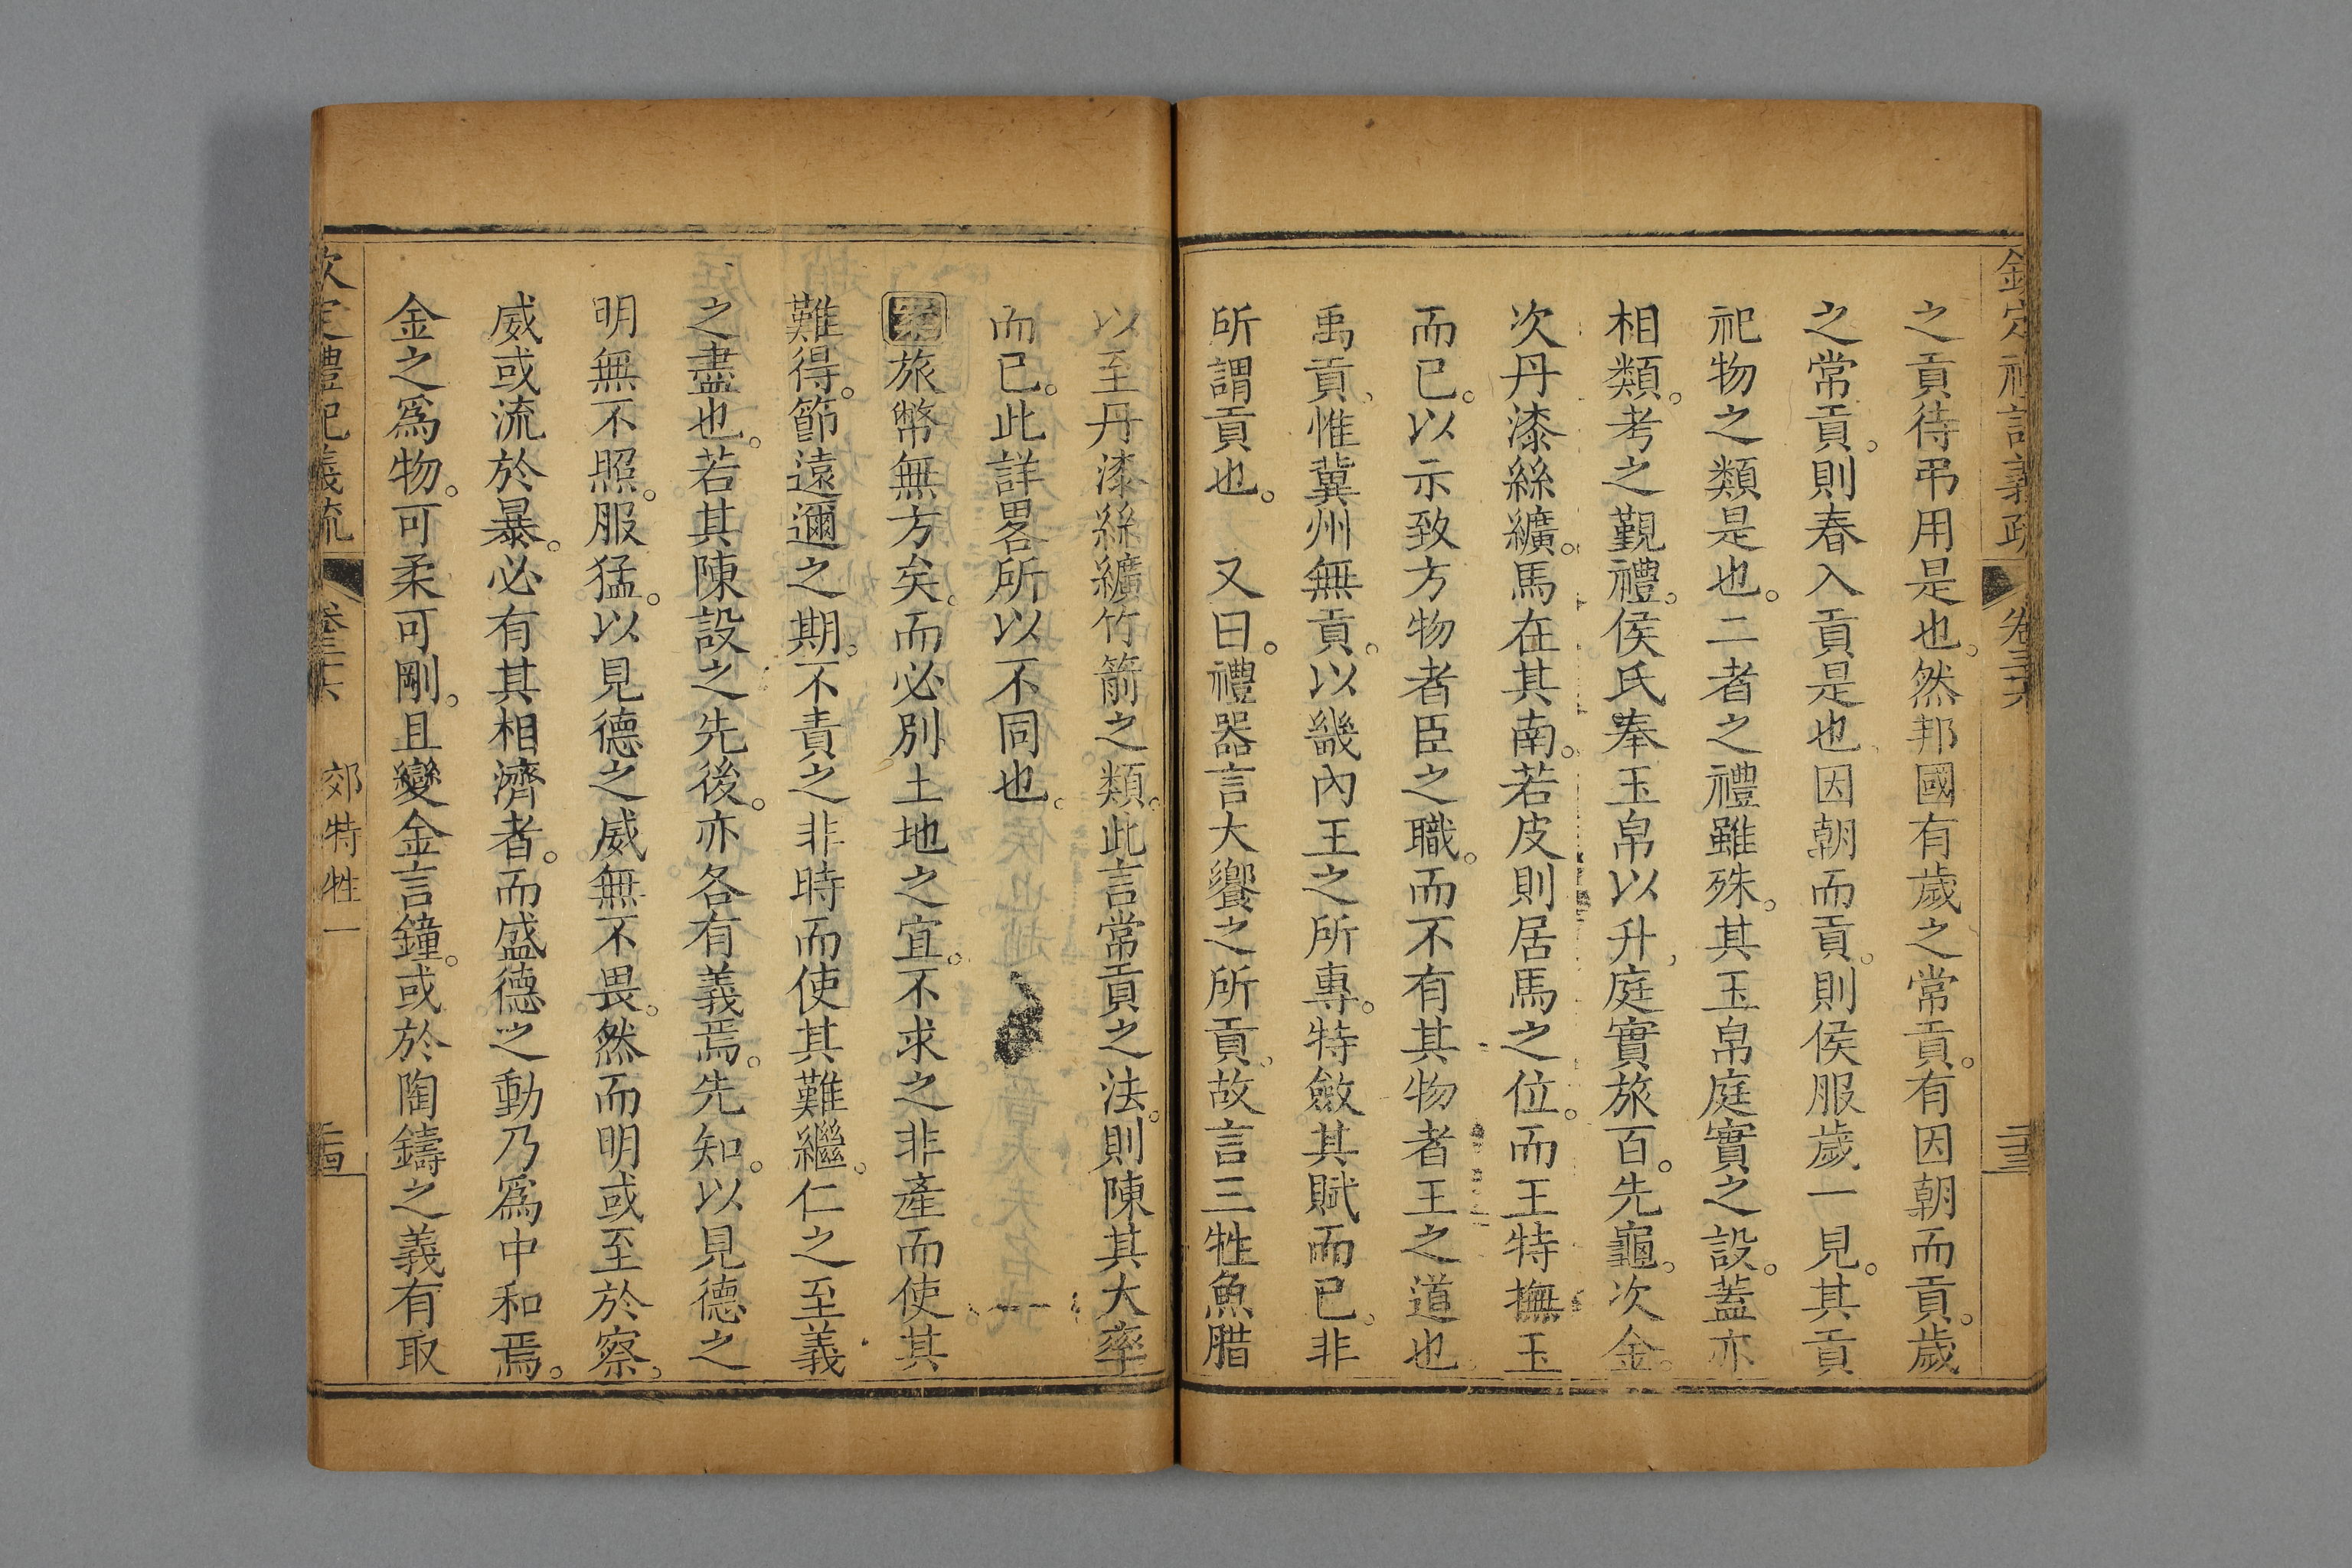 欽定禮記義疏 卷三十六 二十三
之貢待弔用是也。然邦國有歲之常貢。有因朝而貢。歲
之常貢。則春入貢是也、因朝而貢。則侯服歲一見。其貢
祀物之類是也。二者之禮雖殊。其玉帛庭實之設。蓋亦
相類。考之覲禮。侯氏奉玉帛以升、庭實旅百。先龜。次金。
次丹漆絲纊。馬在其南。若皮則居馬之位。而王特撫玉
而已。以示致方物者臣之職。而不有其物者王之道也。
禹貢、惟冀州無貢。以畿內王之所專。特斂其賦而已。非
所謂貢也。　又曰。禮器言大饗之所貢、故言三牲魚腊
以至丹漆絲纊竹箭之類。此言常貢之法。則陳其大率
而已。此詳畧所以不同也。
案旅幣無方矣。而必別土地之宜。不求之非產而使其
難得。節遠邇之期。不責之非時而使其難繼。仁之至義
之盡也。若其陳設之先後。亦各有義焉。先知。以見德之
明無不照。服猛。以見德之威無不畏。然而明或至於察。
威或流於暴。必有其相濟者。而盛德之動乃爲中和焉。
金之爲物。可柔可剛。且變金言鐘。或於陶鑄之義有取
欽定禮記義疏 卷三十六 郊特牲一 二十四